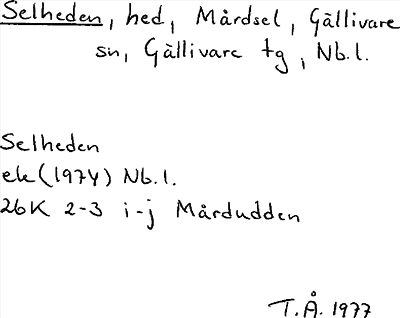 Selheden, hed, Mårdsel, Gällivare
sn, Gällivare tg, Nb.l.
Selheden
ek (1974) Nb.l.
26K 2-3 i-j Mårdudden
T.Å. 1977